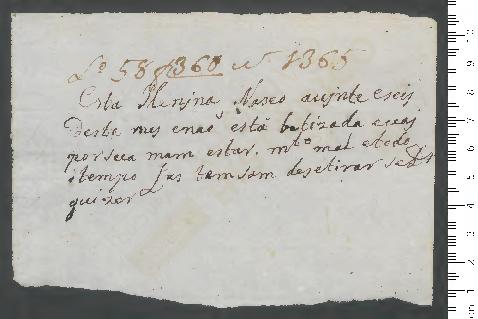 Lº 58 f 360 nº 1365
Esta Menina Naseo avinte eseis
deste mes enaõ está batizada e vay
por sua mam estar. mtº mal e tode
itempo fas tensam deretirar se Ds
quizer